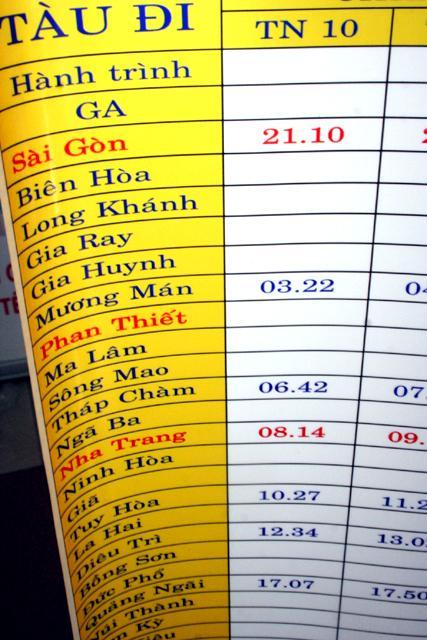 TÀU ĐI
TN 10
Hành trình
GA
Sài Gòn 21.10
Biên Hòa
Long Khánh
Gia Ray
Gia Huynh
Mương Mán 03.22
Phan Thiết
Ma Lâm
Sông Mao
Tháp Chàm 06.42
Ngã Ba
Nha Trang 08.14 09.
Ninh Hòa
Giã
Tuy Hòa 10.27 11.2
La Hai
Diêu Trì 12.34 13.0
Bồng Sơn
Đức Phổ
Quảng Ngãi 17.07 17.50
Thành
Kỳ